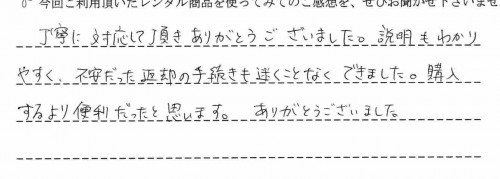 今回ご利用頂いたレンタル商品を使ってみてのご感想を、ぜひお聞かせ下さいませ
丁寧に対応して頂きありがとうございました。説明もわかり
やすく、不安だった返却の手続きも迷くことなくできました。購入
するより便利だったと思います。 ありがとうございました。